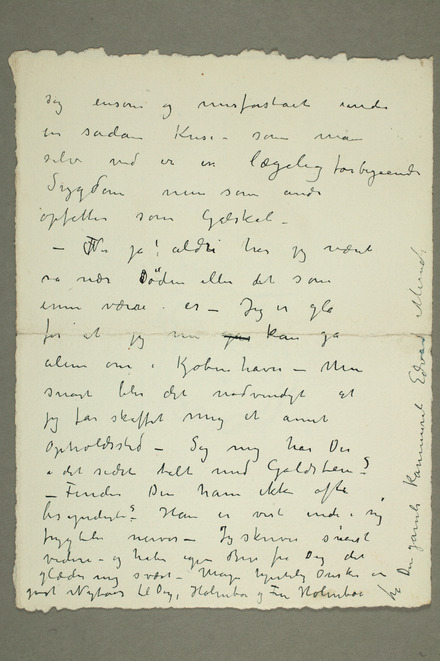 sig ensom og misforstaaet under
en sådan Krise – som man
selv ved er en lægelig forbigaaende
Sygdom men som andre
opfattes som Galskab –
– Nu ja! aldri har jeg været
så nær Døden eller det som
ennu værre er – Jeg er gla
for at jeg nu kan gå
alene om i Kjøbenhavn – Men
snart blir det nødvendigt at
jeg får skaffet mig et annet
Opholdssted – Sig mig har Du
i det sidste talt med Goldstein?
– Finder Du ham ikke ofte
besynderlig? Han er vist inde i sig
frygtelig nervøs – Jeg skriver snart
videre – og haber ogsa Brev fra Dig det
glæder mig svært – Mange hjertelig Ønsker om
godt Nytaar til Dig, Holmboe og Fru Holmboe
fra Din gamle Kammerat Edvard Munch